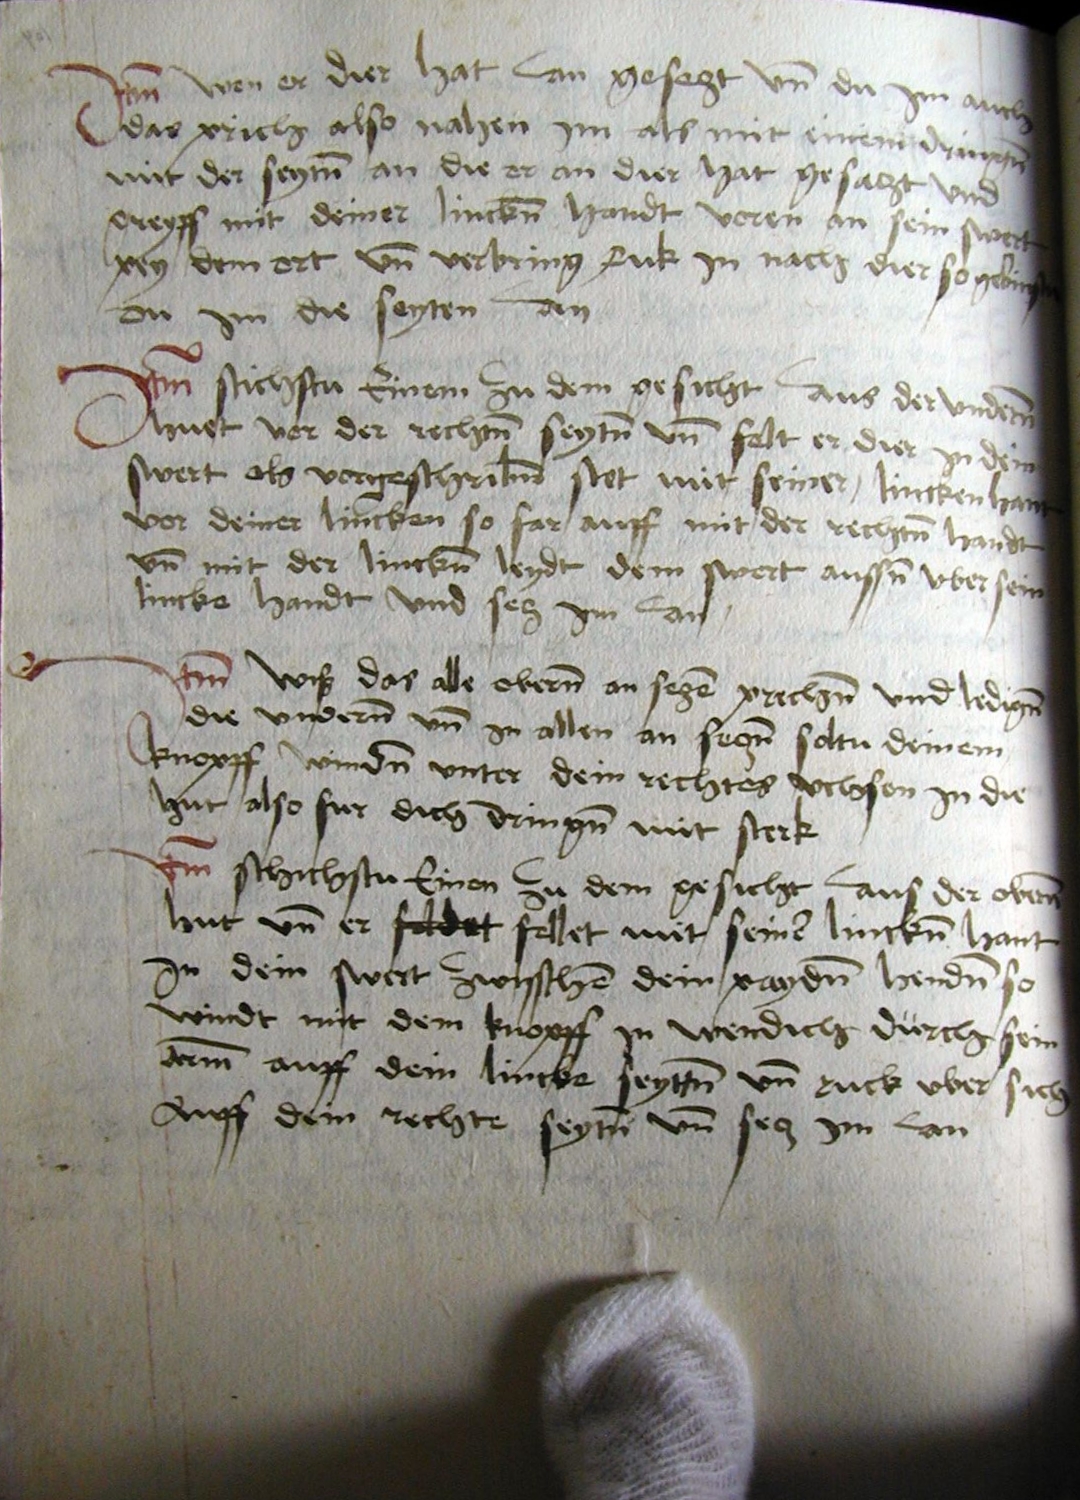 Itm̃ wen er dier hat an gesetzt vñ du im auch
das prich also nahen im als mit einem dringen̄
mit der seytn̄ an die er an dier hat gesatzt vnd
greyff mit deiner linckn̄ handt voren an sein swert
pey dem ort vñ verbring ruk in nach dier so gebinstu
zu im die seyten an
Itm̃ stichstu Einem zu dem gesicht aus der vnderñ
huet vor der rechtn̄ seytn̄ vñ felt er dier in dein
swert als vorgeschribm̄ stet mit seiner lincken hant
vor deiner lincken so far auff mit der rechtn̄ handt
vñ mit der linckn̄ leydt dem swert aussn̄ vber sein
lincke handt vnd setz im an
Itm̃ wiß das alle oberñ an setzē prechn̄ vnd ledign̄
die vnderñ vñ in allen an setzn̄ soltu deinem
knopff windn̄ vnter dein rechtes vchsen in die
hut also fur dich dringn̄ mit sterk
Itm̃ schichstu Einen zu dem gesicht aus der oberñ
hut vñ er fellet mit seiner linckn̄ hant
In dein swert zwisschē dein paydn̄ hendn̄ so
windt mit dem knopff in wendich durch sein
arm̄ auff dein lincke seyttn̄ vñ ruck vber sich
Auff dein rechte seytn̄ vñ setz im an